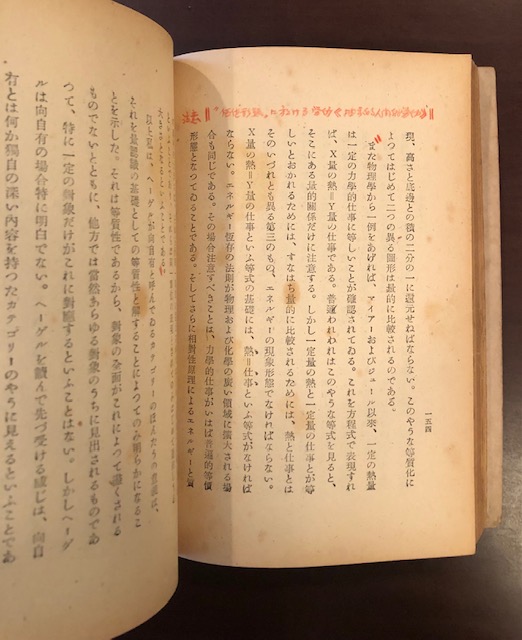 一五四
現、高さと底邊との積の二分の一に還元せねばならない。このやうな等質化に
よつてはじめて二つの異る圖形は量的に比較されるのである。
また物理學から一例をあげれば、マイアーおよびジュール以來、一定の熱量
は一定の力學的仕事に等しいことが確認されてゐる。これを方程式で表現すれ
ば、X量の熱＝Y量の仕事である。普通われわれはこのやうな等式を見ると、
そこにある量的關係だけに注意する。しかし一定量の熱と一定量の仕事とが等
しいとおかれるためには、すなはち量的に比較されるためには、熱と仕事とは
そのいづれとも異る第三のもの、エネルギーの現象形態でなければならない。
X量の熱＝Y量の仕事といふ等式の基礎には、熱＝仕事といふ等式がなければ
ならない。エネルギー恆存の法則が物理および化學の廣い領域に擴大される場
合も同じである。その場合注意すべきことは、力學的仕事がいはば普遍的等價
形態となつてゐることである。そしてさらに相對性原理によるエネルギーと質
以上私は、ヘーゲルが向自有と呼んでゐるカテゴリーのほんたうの意義は、
それを量認識の基礎としての等質性と解することによつてのみ明らかになるこ
とを示した。それは等質性であるから、對象の全面がこれによつて蔽くされる
ものでないとともに、他方では當然あらゆる對象のうちに見出されるものであ
つて、特に一定の對象だけがこれに對應するといふことはない。しかしヘーゲ
ルは向自有の場合特に明白でない。ヘーゲルを讀んで先づ受ける感じは、向自
有とは何か獨自の深い内容を持つたカテゴリーのやうに見えるといふことであ